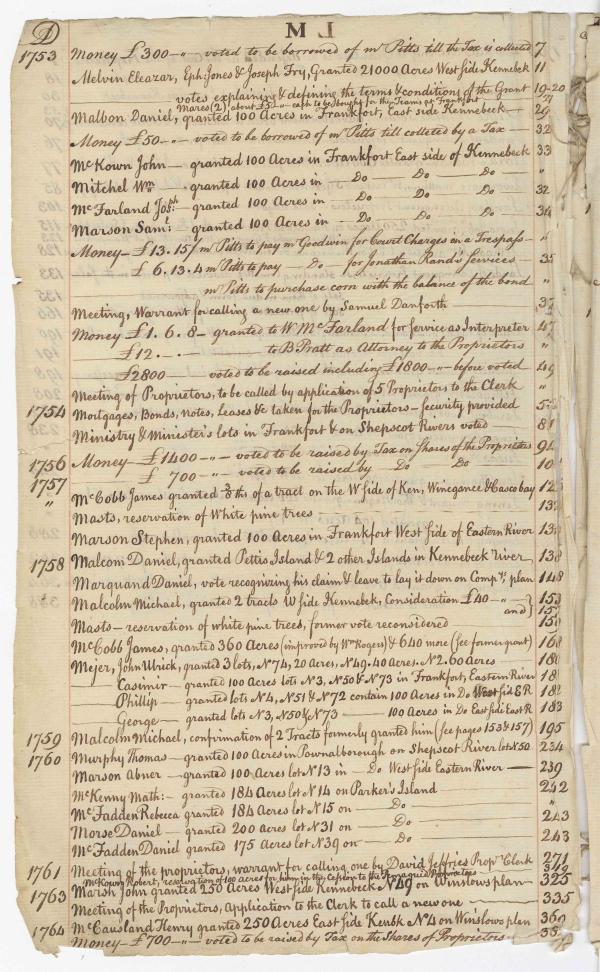 D M
1753 Money £300 -"- voted to be borrowed of mr Pitts till the Tax is collected 7
Melvin Eleazar, Eph: Jones & Joseph Fry, Granted 21000 Acres West side Kennebek 11
votes explaining & defining the terms & conditions of the Grant 19-20
Mares (2) about £5 -"- each to be bought for the Teams at Frankfort
Malbon Daniel, granted 100 Acres in Frankfort, East side Kennebeck 29
Money £50 -"- voted to be borrowed of mr Pitts till collected by a Tax 32
McKown John - granted 100 Acres in Frankfort East side of Kennebeck 33
Mitchel Wm - granted 100 Acres in Do Do Do "
McFarland Josph: - granted 100 Acres in Do Do Do 32
Marson Saml: - granted 100 Acres in Do Do Do 34
Money - £13.15/ mr Pitts to pay mr Goodwin for Court Charges in a Trespass "
£6.13.4 mr Pitts to pay Do for Jonathan Rand's Services 35
mr Pitts to purchase corn with the balance of the bond "
Meeting, Warrant for calling a new one by Samuel Danforth 37
Money £1.6.8 - granted to Wm McFarland for Service as Interpreter 47
£12.-.- to B Pratt as Attorney to the Proprietors "
£2800 voted to be raised including £1800 -"- before voted 49
Meeting of Proprietors, to be called by application of 5 Proprietors to the Clerk "
1754 Mortgages, Bonds, Notes, Leases &c taken for the Proprietors - security provided
Ministry & Minister's lots in Frankfort & on Shepscot Rivers voted 81
1756 Money - £1400 -"- voted to be raised by Tax on Shares of the Proprietors 94
£700 -"- voted to be raised by Do Do 10
1757
" McCobb James granted 3/8 ths of a tract on the W side of Ken, Winegance & Casco bay 12
Masts, reservation of White pine trees 13
Marson Stephen, granted 100 Acres in Frankfort West side of Eastern River 13
1758 Malcom Daniel, granted Pettis Island & 2 other Islands in Kennebeck River 138
Marquand Daniel, vote recognizing his claim & leave to lay it down on Compys plan 148
Malcolm Michael, granted 2 tracts W side Kennebek, Consideration £40 -"- 153
and 157
Masts - reservation of white pine trees, former vote reconsidered 15
McCobb James, granted 360 Acres (improved by Wm Rogers) & 640 more (See former grant) 168
Mejer, John Ulrick, granted 3 lots, N74, 20 Acres, N49. 40 Acres. N2. 60 Acres 180
Casimir - granted 100 Acres lots N3, N50 & N73 in Frankfort, Eastern River 18
Phillip - granted lots N4, N51 & N72 contain 100 Acres in Do West side E R 182
George - granted lots N3, N50 & N73 100 Acres in Do East side East R 183
1759 Malcolm Michael, confirmation of 2 Tracts formerly granted him (See pages 153 & 157) 195
1760 Murphy Thomas - granted 100 Acres in Pownalborough on Shepscot River lot N50 234
Marson Abner - granted 100 Acres lot N13 in Do West side Eastern River 239
McKenny Math: - granted 184 Acres lot N14 on Parker's Island 242
McFadden Rebecca granted 184 Acres lot N15 on Do "
Morse Daniel - granted 200 Acres lot N31 on Do 243
McFadden Daniel granted 175 Acres lot N39 on Do 243
1761 Meeting of the proprietors, warrant for calling one by David Jeffries Propr's Clerk 271
McKown Robert, reservation of 100 acres for him in the Cession to the Pemaquid Proprietors
1763 Marsh John granted 250 Acres West side Kennebeck N49 on Winslows plan 325
Meeting of the Proprietors, Application to the Clerk to call a new one 335
1764 McCausland Henry granted 250 Acres East side Kenbk N4 on Winslows plan 360
Money - £700 -"- voted to be raised by Tax on the Shares of Proprietors